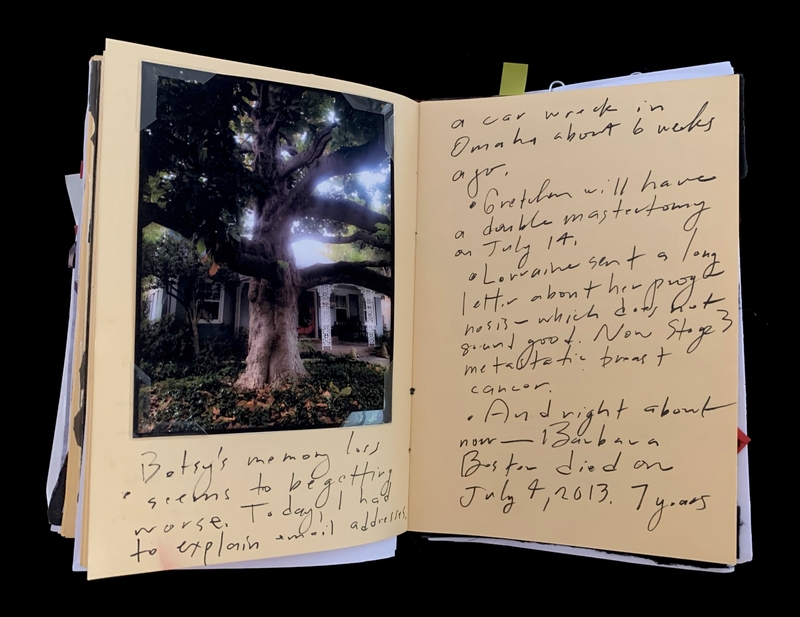 • Betsy's memory loss
seems to be getting
worse. Today, I had
to explain email addresses.
a car wreck in
Omaha about 6 weeks
ago.
• Gretchen will have
a double mastectomy
on July 14.
• Lorraine sent a long
letter about her prog-
nosis — which does not
sound good. Now Stage 3
metastatic breast
cancer.
• And right about
now — Barbara
Boston died on
July 4, 2013. 7 years